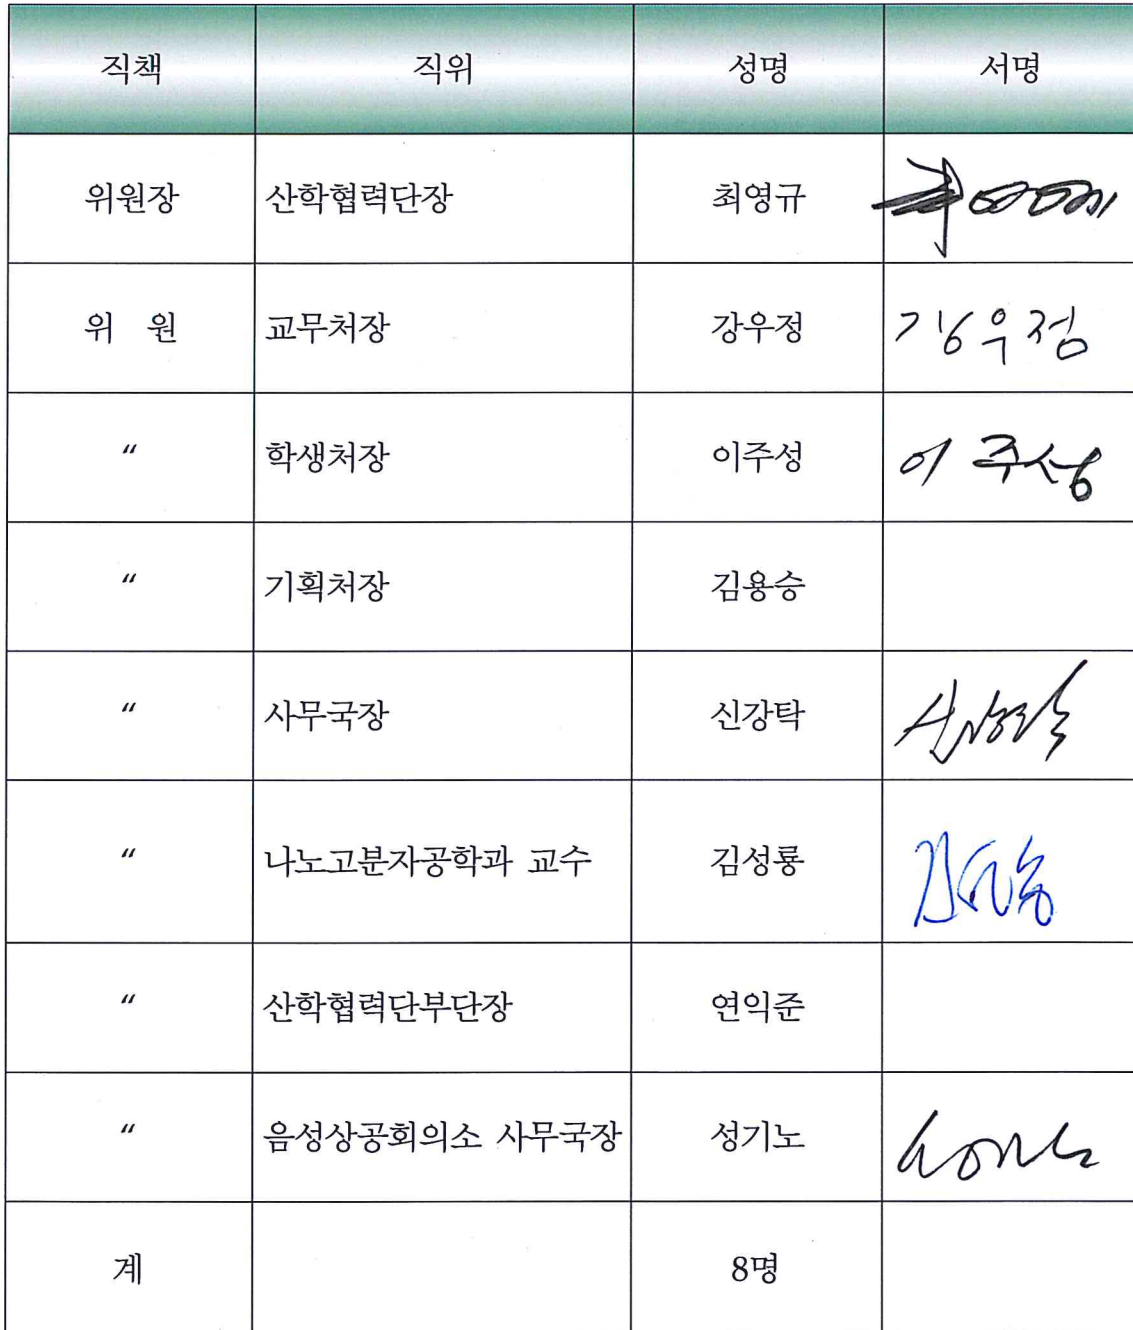 직책 직위 성명 서명
위원장 산학협력단장 최영규
위 원 교무처장 강우정 강우정
〃 학생처장 이주성 이주성
〃 기획처장 김용승
〃 사무국장 신강탁
〃 나노고분자공학과 교수 김성룡
〃 산학협력단부단장 연익준
〃 음성상공회의소 사무국장 성기노
계 8명